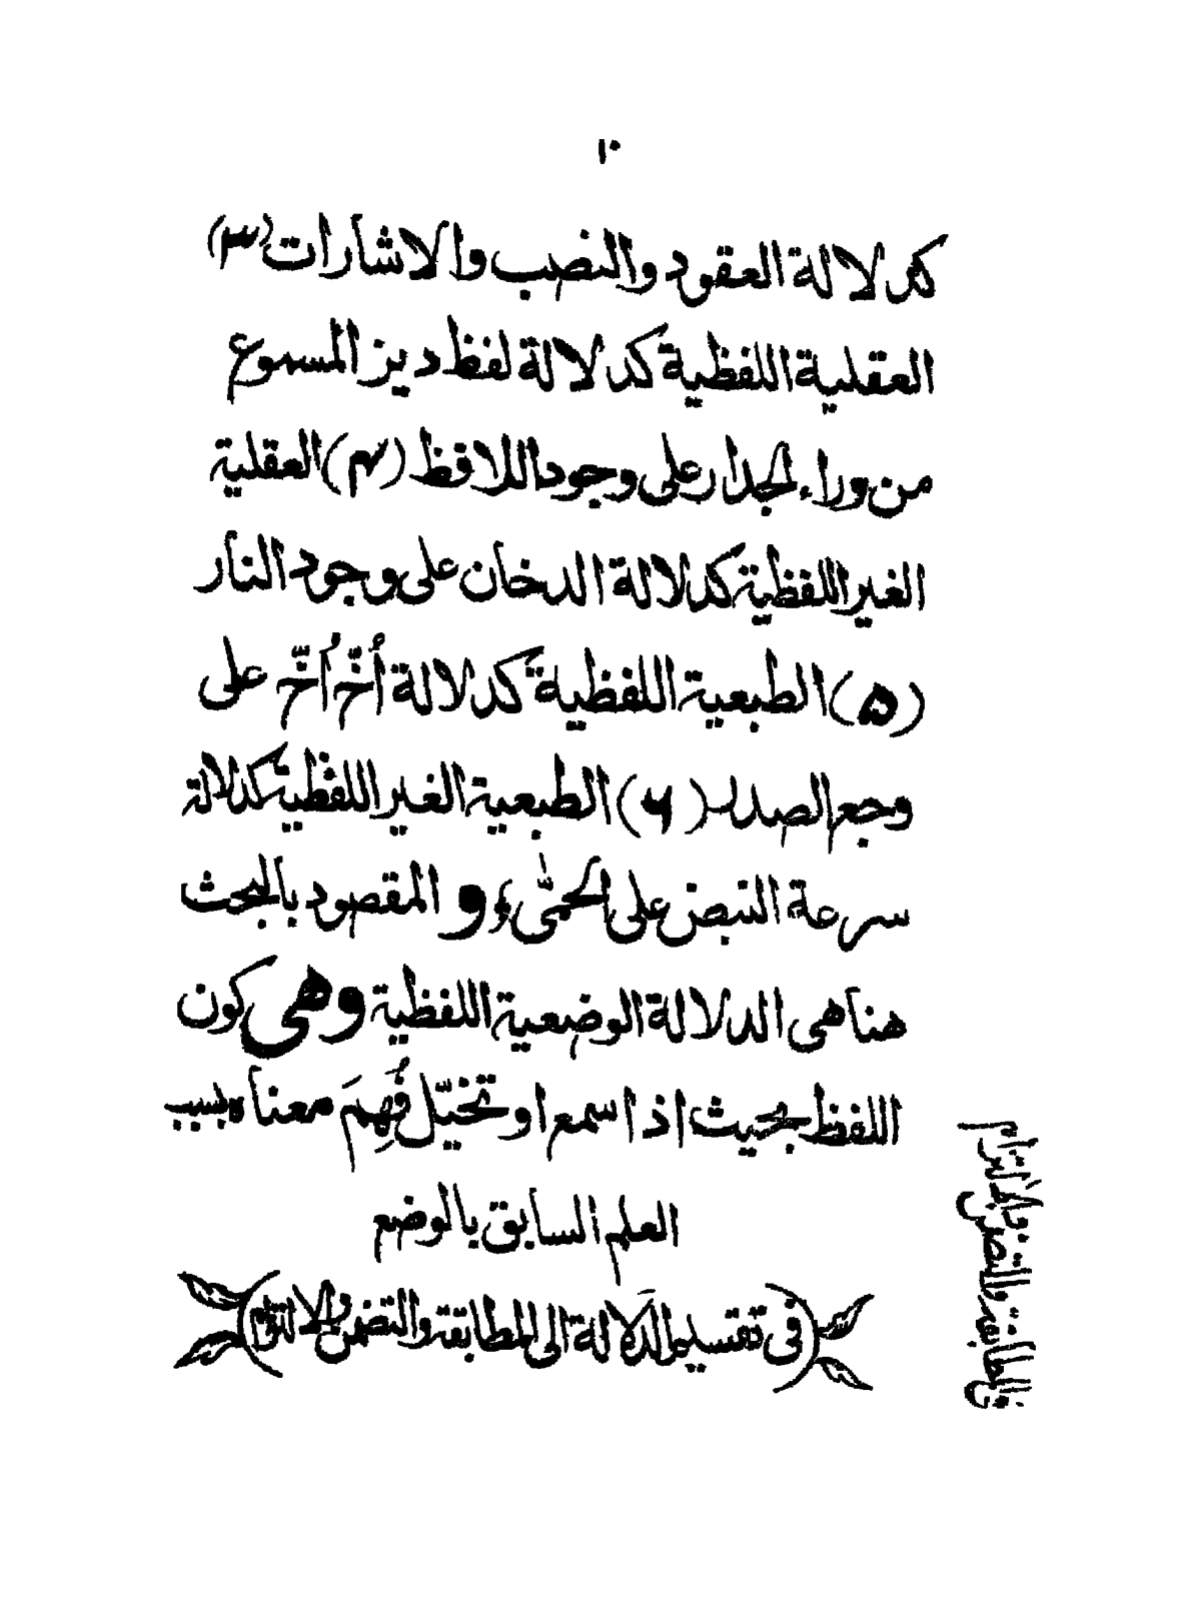 ١٠
كدلالة العقود والنصب والاشارات (٣)
العقلية اللفظية كدلالة لفظ ديز المسموع
من وراء الجدار على وجود اللافظ (۴) العقلية
الغير اللفظية كدلالة الدخان على وجود النار
(۵) الطبعية اللفظية كدلالة أُخّ أُخّ على
وجع الصدر (۶) الطبعية الغير اللفظية كدلالة
سرعة النبض على الحمّى، و المقصود بالبحث
هنا هى الدلالة الوضعية اللفظية وهى كون
اللفظ بحيث اذا سمع او تخيّل فُهِمَ معناه بسبب
العلم السابق بالوضع
(فى تقسيم الدلالة الى المطابقة والتضمن والالتزام)
فى المطابقة والتضمن والالتزام